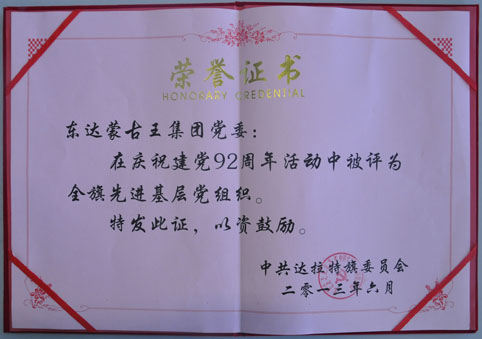 荣誉证书
HONORARY CREDENTIAL
东达蒙古王集团党委：
在庆祝建党92周年活动中被评为
全旗先进基层党组织。
特发此证，以资鼓励。
中共达拉特旗委员会
二零一三年六月